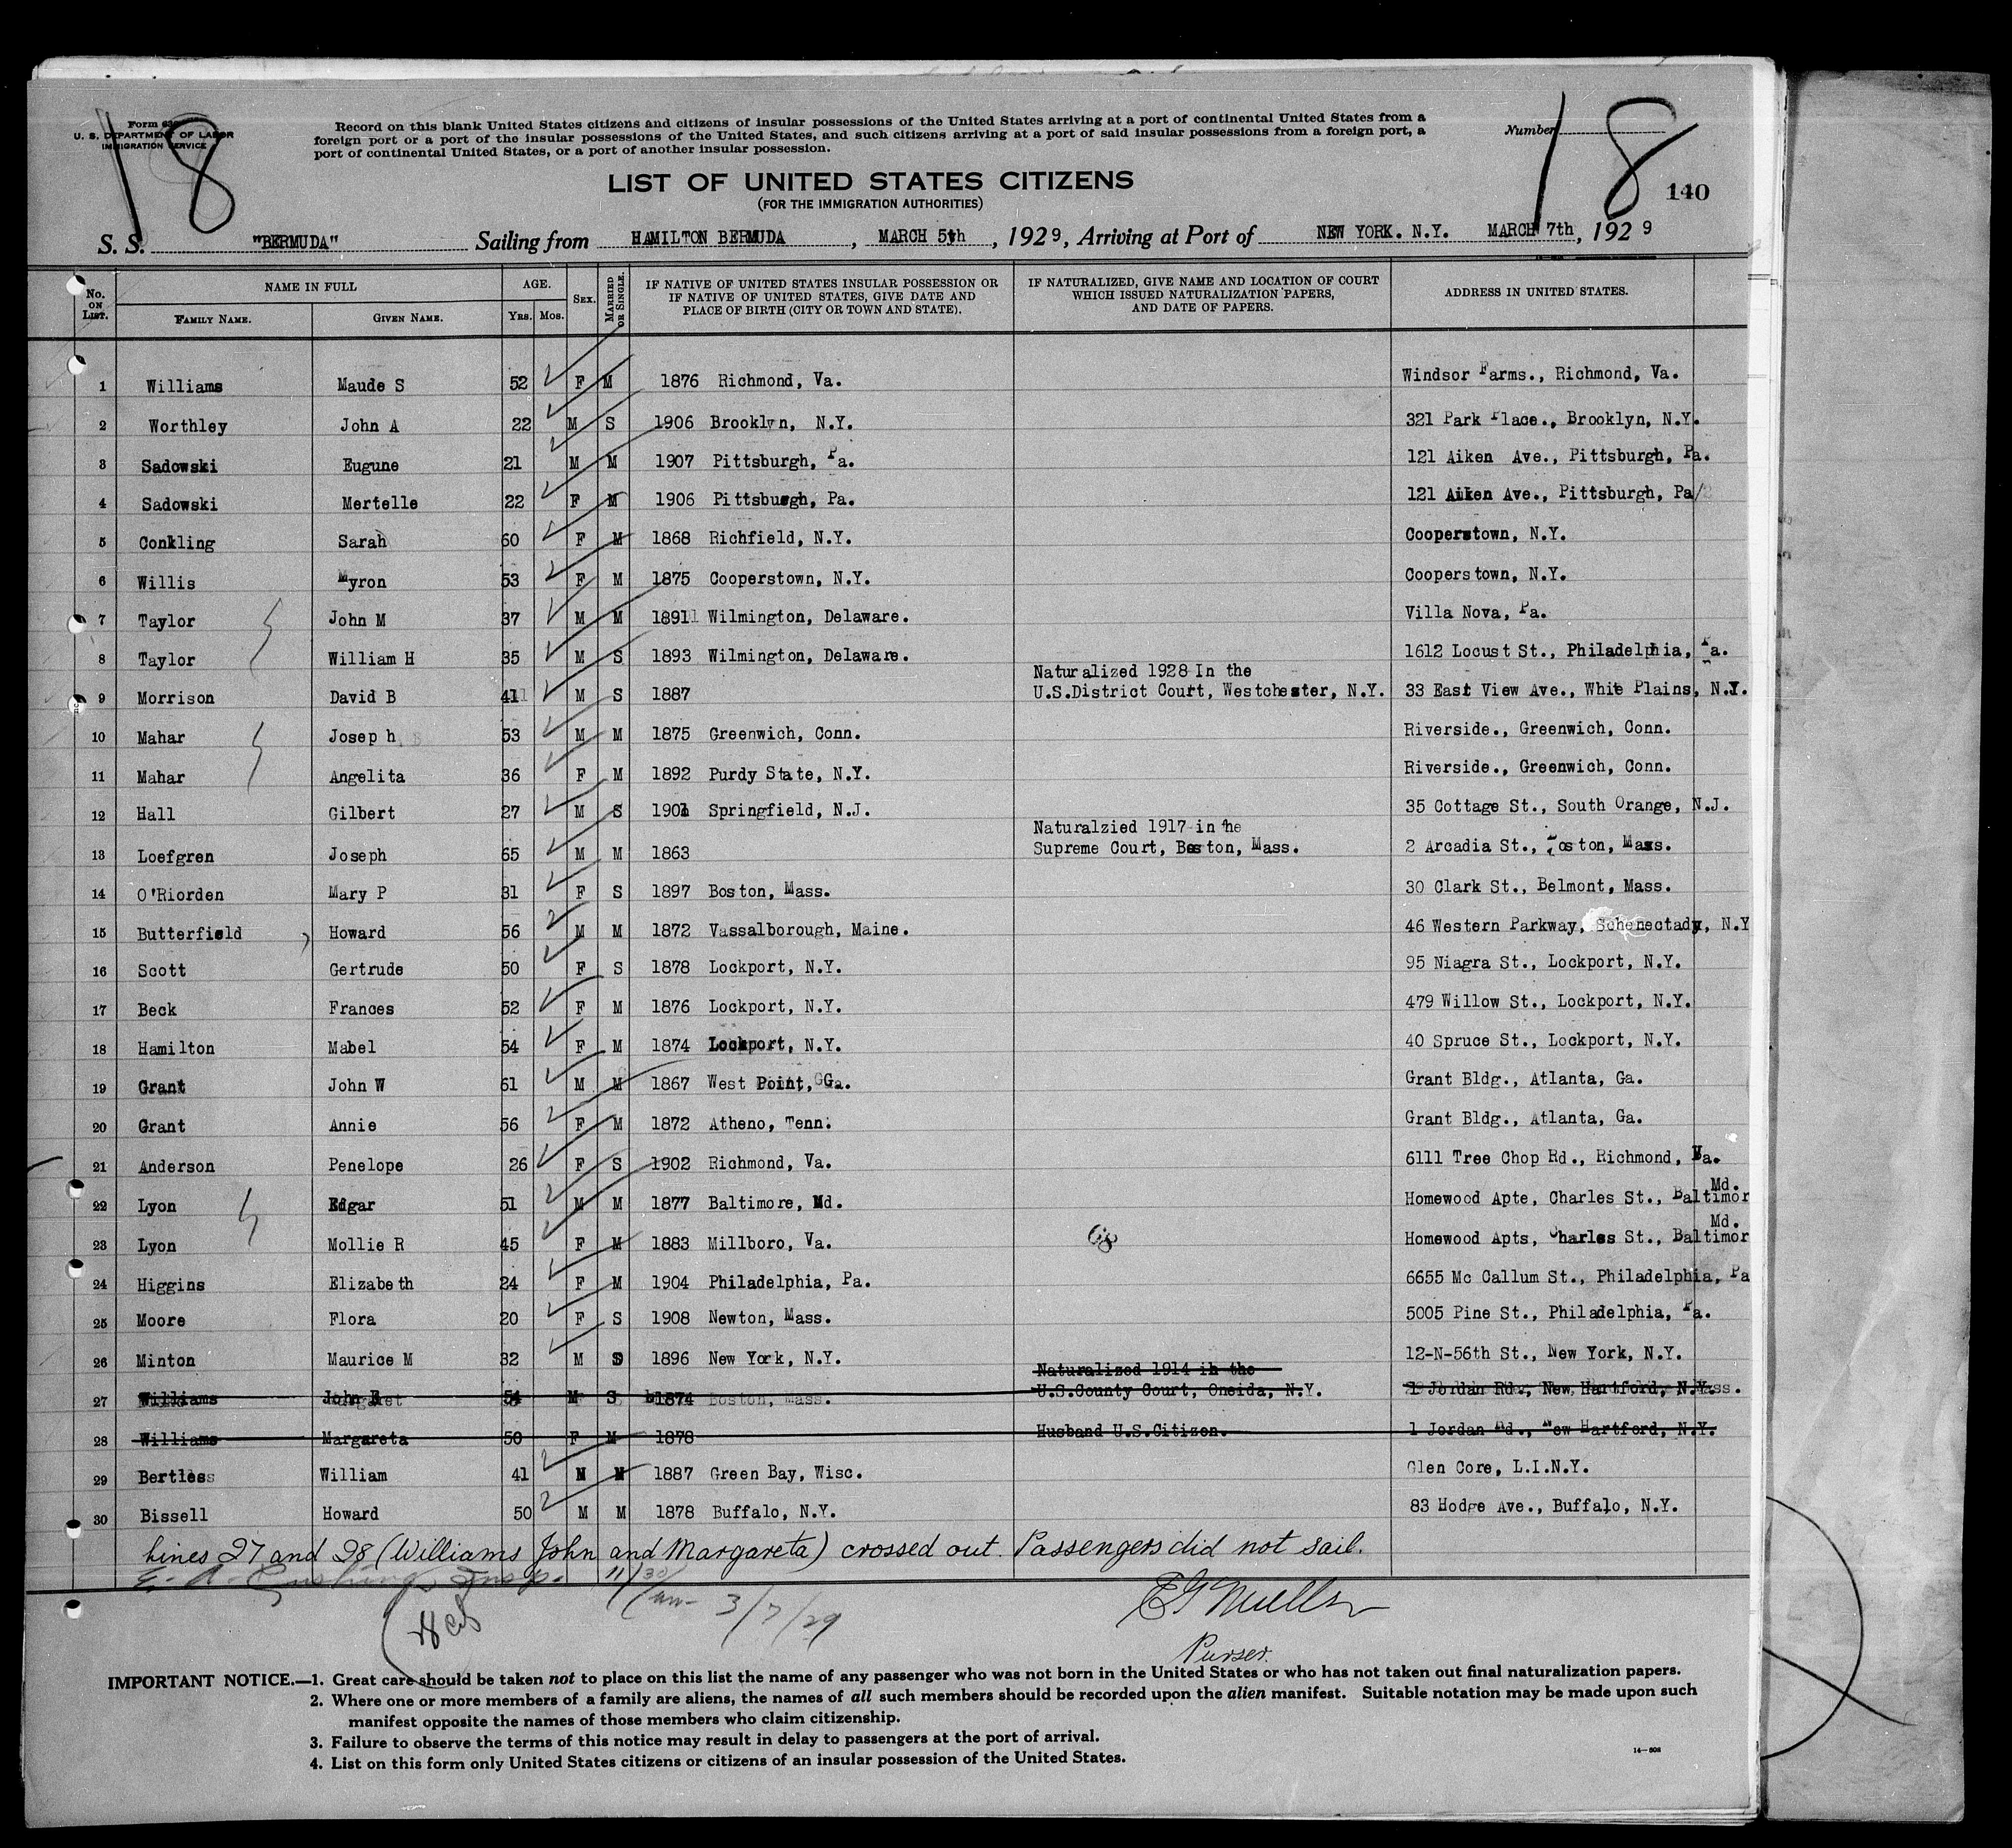 18
Form 630
U. S. DEPARTMENT OF LABOR
IMMIGRATION SERVICE
Record on this blank United States citizens and citizens of insular possessions of the United States arriving at a port of continental United States from a
foreign port or a port of the insular possessions of the United States, and such citizens arriving at a port of said insular possessions from a foreign port, a
port of continental United States, or a port of another insular possession.
Number
18
140
LIST OF UNITED STATES CITIZENS
(FOR THE IMMIGRATION AUTHORITIES)
S. S. "BERMUDA" Sailing from HAMILTON BERMUDA, MARCH 5th, 1929, Arriving at Port of NEW YORK. N.Y. MARCH 7th, 1929
No. ON LIST. NAME IN FULL FAMILY NAME. GIVEN NAME. AGE. YRS. MOS. SEX. MARRIED OR SINGLE. IF NATIVE OF UNITED STATES INSULAR POSSESSION OR IF NATIVE OF UNITED STATES, GIVE DATE AND PLACE OF BIRTH (CITY OR TOWN AND STATE). IF NATURALIZED, GIVE NAME AND LOCATION OF COURT WHICH ISSUED NATURALIZATION PAPERS, AND DATE OF PAPERS. ADDRESS IN UNITED STATES.
1 Williams Maude S 52 F M 1876 Richmond, Va. Windsor Farms., Richmond, Va.
2 Worthley John A 22 M S 1906 Brooklyn, N.Y. 321 Park Place., Brooklyn, N.Y.
3 Sadowski Eugune 21 M M 1907 Pittsburgh, Pa. 121 Aiken Ave., Pittsburgh, Pa.
4 Sadowski Mertelle 22 F M 1906 Pittsburgh, Pa. 121 Aiken Ave., Pittsburgh, Pa/
5 Conkling Sarah 60 F M 1868 Richfield, N.Y. Cooperstown, N.Y.
6 Willis Myron 53 F M 1875 Cooperstown, N.Y. Cooperstown, N.Y.
7 Taylor John M 37 M M 1891 Wilmington, Delaware. Villa Nova, Pa.
8 Taylor William H 35 M S 1893 Wilmington, Delaware. 1612 Locust St., Philadelphia, Pa.
9 Morrison David B 41 M S 1887 Naturalized 1928 In the U.S.District Court, Westchester, N.Y. 33 East View Ave., White Plains, N.Y.
10 Mahar Joseph 53 M M 1875 Greenwich, Conn. Riverside., Greenwich, Conn.
11 Mahar Angelita 36 F M 1892 Purdy State, N.Y. Riverside., Greenwich, Conn.
12 Hall Gilbert 27 M S 1901 Springfield, N.J. 35 Cottage St., South Orange, N.J.
13 Loefgren Joseph 65 M M 1863 Naturalzied 1917 in the Supreme Court, Boston, Mass. 2 Arcadia St., Boston, Mass.
14 O'Riorden Mary P 31 F S 1897 Boston, Mass. 30 Clark St., Belmont, Mass.
15 Butterfield Howard 56 M M 1872 Vassalborough, Maine. 46 Western Parkway, Schenectady, N.Y
16 Scott Gertrude 50 F S 1878 Lockport, N.Y. 95 Niagra St., Lockport, N.Y.
17 Beck Frances 52 F M 1876 Lockport, N.Y. 479 Willow St., Lockport, N.Y.
18 Hamilton Mabel 54 F M 1874 Lockport, N.Y. 40 Spruce St., Lockport, N.Y.
19 Grant John W 61 M M 1867 West Point, Ga. Grant Bldg., Atlanta, Ga.
20 Grant Annie 56 F M 1872 Atheno, Tenn. Grant Bldg., Atlanta, Ga.
21 Anderson Penelope 26 F S 1902 Richmond, Va. 6111 Tree Chop Rd., Richmond, Va.
22 Lyon Edgar 51 M M 1877 Baltimore, Md. Homewood Apte, Charles St., Baltimor Md.
23 Lyon Mollie R 45 F M 1883 Millboro, Va. 68 Homewood Apts, Charles St., Baltimor Md.
24 Higgins Elizabeth 24 F M 1904 Philadelphia, Pa. 6655 Mc Callum St., Philadelphia, Pa
25 Moore Flora 20 F S 1908 Newton, Mass. 5005 Pine St., Philadelphia, Pa.
26 Minton Maurice M 32 M S 1896 New York, N.Y. 12-N-56th St., New York, N.Y.
27 Williams John E 54 M S 1874 Naturalized 1914 in the U.S.County Court, Oneida, N.Y. 1 Jordan Rd., New Hartford, N.Y.
28 Williams Margareta 50 F M 1878 Husband U.S.Citizen. 1 Jordan Rd., New Hartford, N.Y.
29 Bertles William 41 M M 1887 Green Bay, Wisc. Glen Core, L.I.N.Y.
30 Bissell Howard 50 M M 1878 Buffalo, N.Y. 83 Hodge Ave., Buffalo, N.Y.
Lines 27 and 28 (Williams John and Margareta) crossed out. Passengers did not sail.
E. A. Cushing Insp. 11/30 am- 3/7/29
Purser.
IMPORTANT NOTICE.—1. Great care should be taken not to place on this list the name of any passenger who was not born in the United States or who has not taken out final naturalization papers.
2. Where one or more members of a family are aliens, the names of all such members should be recorded upon the alien manifest. Suitable notation may be made upon such
manifest opposite the names of those members who claim citizenship.
3. Failure to observe the terms of this notice may result in delay to passengers at the port of arrival.
4. List on this form only United States citizens or citizens of an insular possession of the United States.
14—808